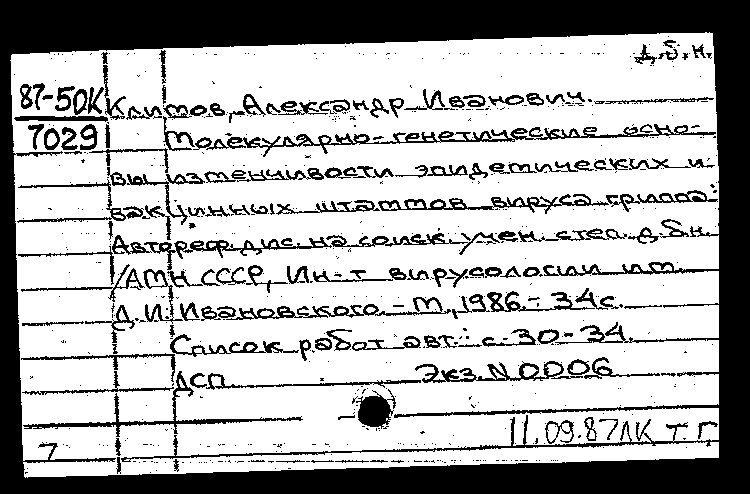 д.б.н.
87-50К Климов, Александр Иванович.
7029 Молекулярно-генетические осно-
вы изменчивости эпидемических и
вакцинных штаммов вируса гриппа:
Автореф. дис. на соиск. учен. степ. д.б.н.
/АМН СССР, Ин-т вирусологии им.
Д.И. Ивановского. - М., 1986. - 34 с.
Список работ авт.: с. 30-34.
ДСП Экз. N 0006
11.09.87 ЛК Т.Г.
7